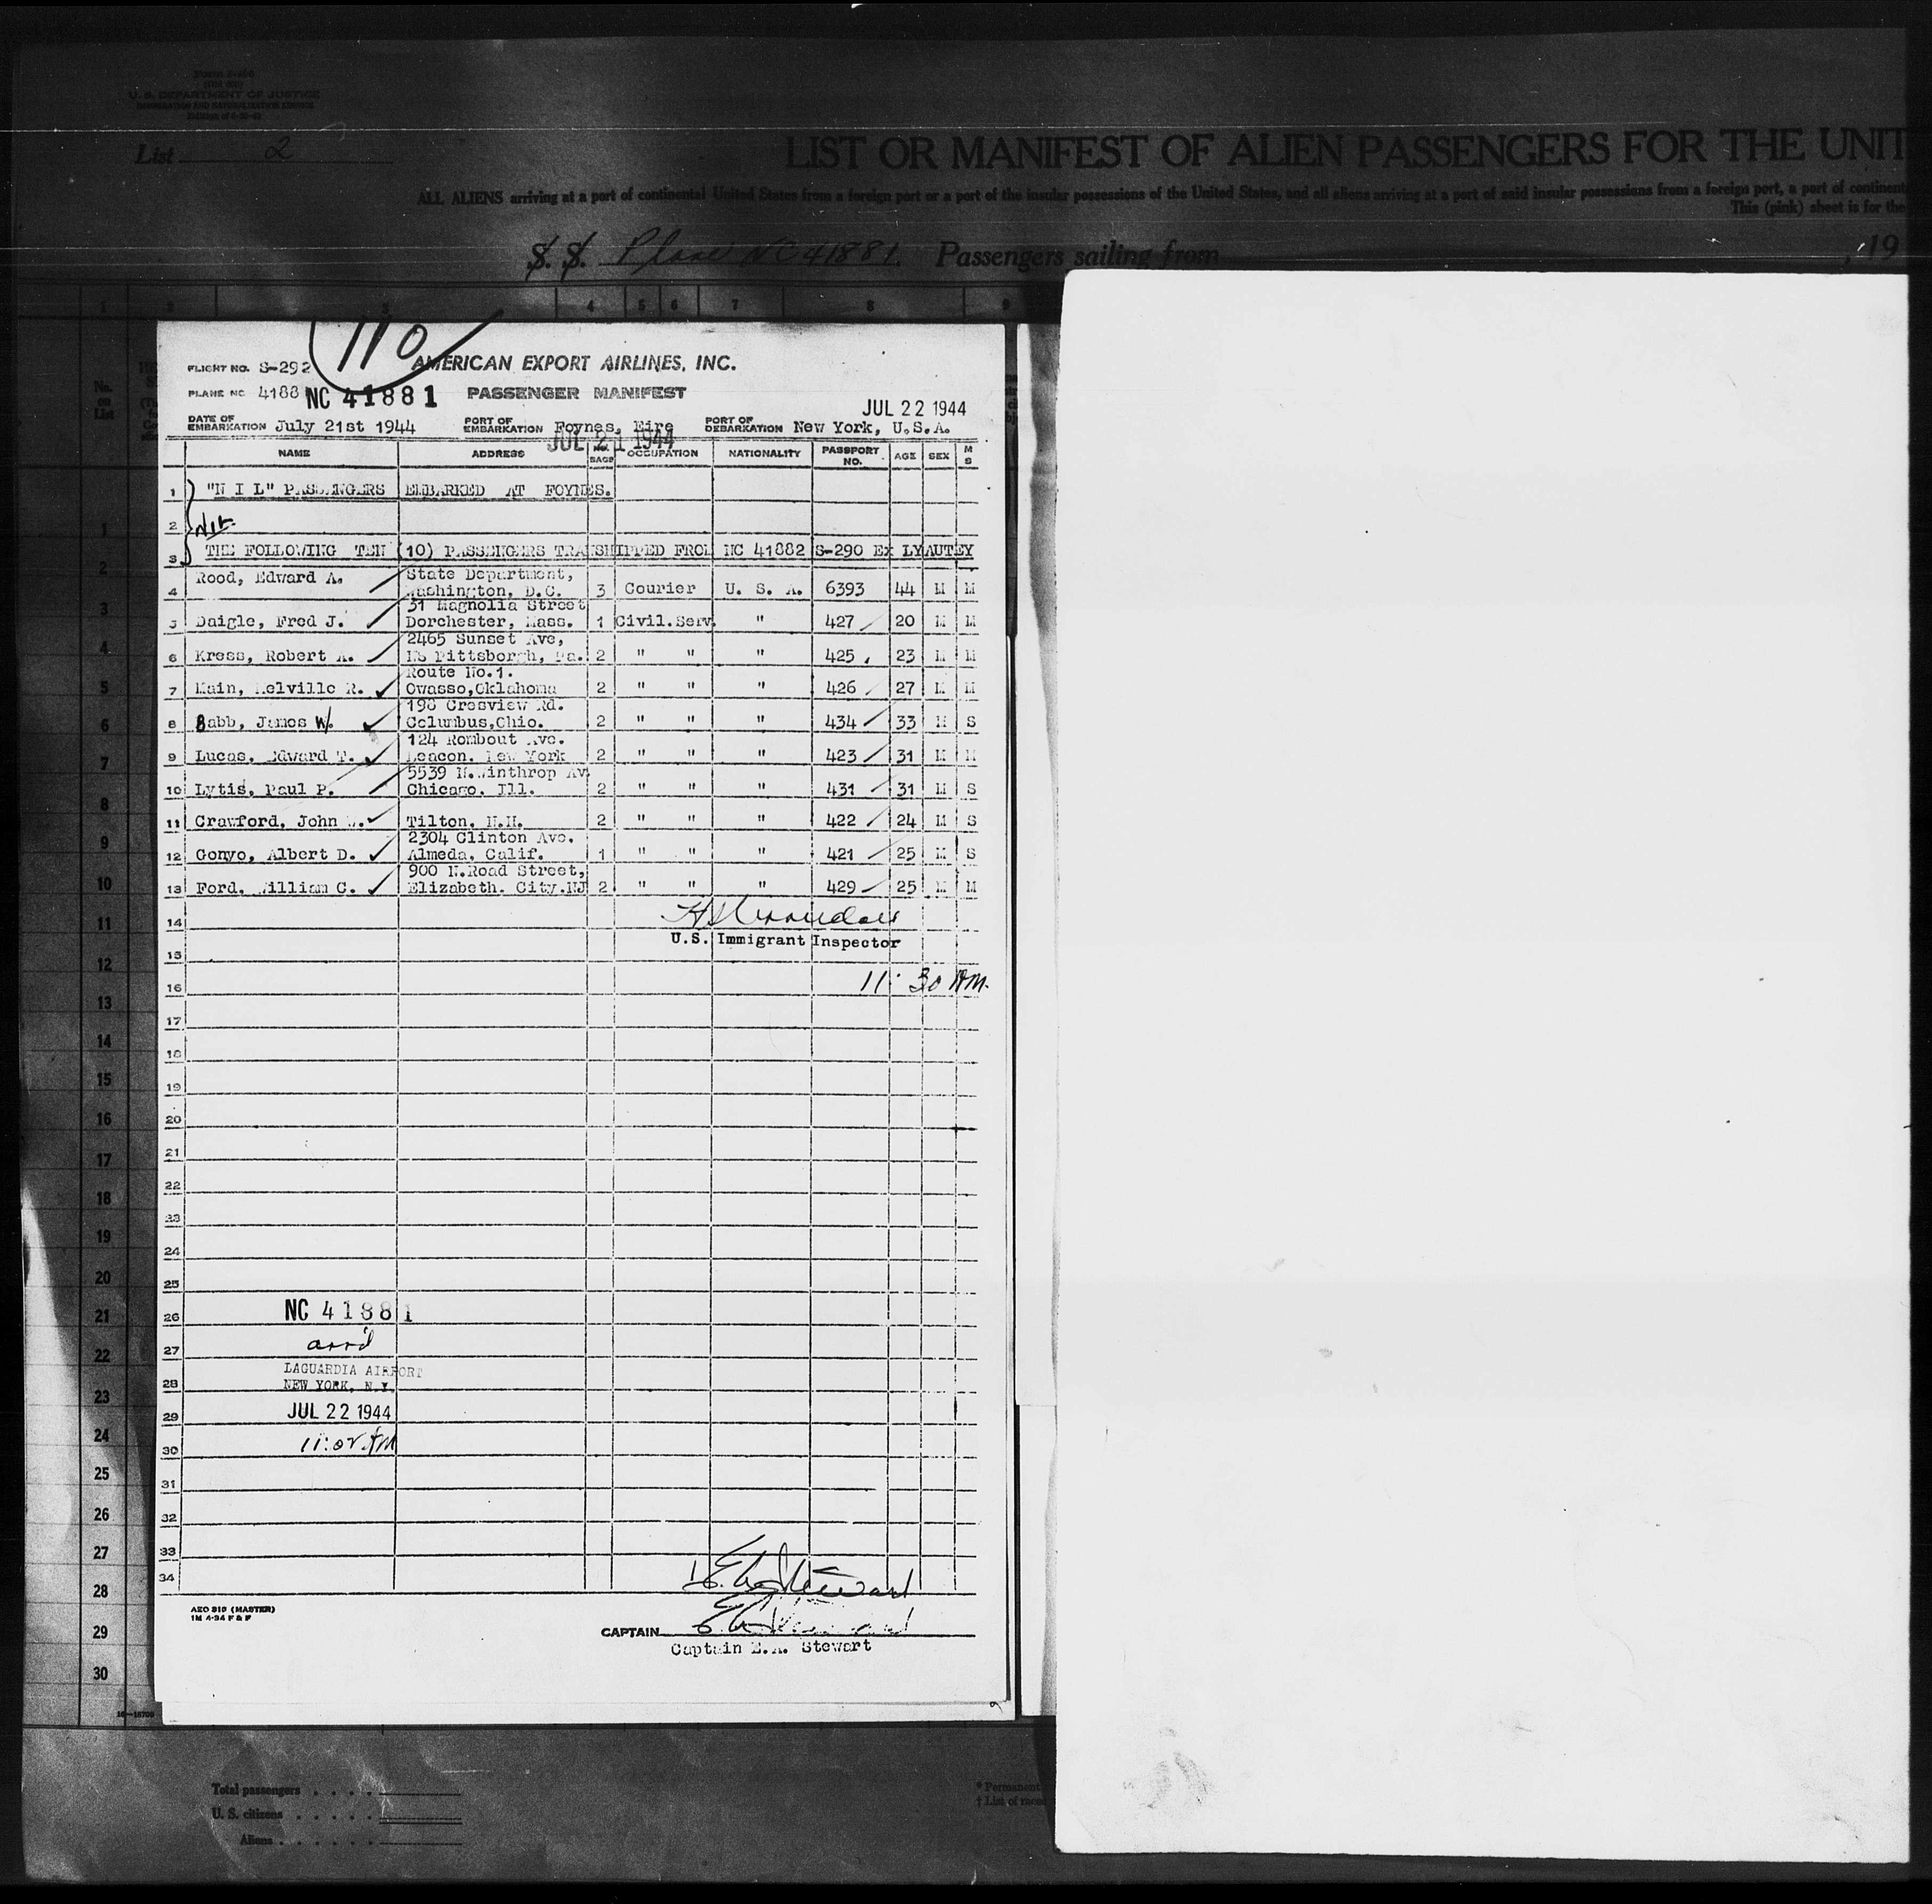 U. S. DEPARTMENT OF JUSTICE
IMMIGRATION AND NATURALIZATION SERVICE
List 2
LIST OR MANIFEST OF ALIEN PASSENGERS FOR THE UNIT
ALL ALIENS arriving at a port of continental United States from a foreign port or a port of the insular possessions of the United States, and all aliens arriving at a port of said insular possessions from a foreign port, a port of continent
This (pink) sheet is for the
S. S. Plane NC 41881 Passengers sailing from , 19
1 2 3 4 5 6 7 8 9
110
FLIGHT NO. S-292 AMERICAN EXPORT AIRLINES, INC.
PLANE NC 4188 NC 41881 PASSENGER MANIFEST
JUL 22 1944
DATE OF EMBARKATION July 21st 1944 PORT OF EMBARKATION Foynes, Eire PORT OF DEBARKATION New York, U.S.A.
JUL 21 1944
NAME ADDRESS NO. BAGS OCCUPATION NATIONALITY PASSPORT NO. AGE SEX M S
1 "N I L" PASSENGERS EMBARKED AT FOYNES.
2 Nil
3 THE FOLLOWING TEN (10) PASSENGERS TRANSHIPPED FROM NC 41882 S-290 Ex LYAUTEY
4 Rood, Edward A. State Department, Washington, D.C. 3 Courier U. S. A. 6393 44 M M
5 Daigle, Fred J. 31 Magnolia Street Dorchester, Mass. 1 Civil.Serv. " 427 20 M M
6 Kress, Robert A. 2465 Sunset Ave, NS Pittsborgh, Pa. 2 " " " 425 23 M M
7 Main, Melville R. Route No.1. Owasso,Oklahoma 2 " " " 426 27 M M
8 Babb, James W. 198 Cresview Rd. Columbus,Ohio. 2 " " " 434 33 M S
9 Lucas, Edward T. 124 Rombout Ave. Beacon. New York 2 " " " 423 31 M M
10 Lytis, Paul P. 5539 N.Winthrop Av. Chicago. Ill. 2 " " " 431 31 M S
11 Crawford, John W. Tilton, N.H. 2 " " " 422 24 M S
12 Gonyo, Albert D. 2304 Clinton Ave. Almeda, Calif. 1 " " " 421 25 M S
13 Ford, William C. 900 N.Road Street, Elizabeth. City.NJ 2 " " " 429 25 M M
14
U.S. Immigrant Inspector
15
16 11:30 AM.
17
18
19
20
21
22
23
24
25
26 NC 41881
27 arr'd
LAGUARDIA AIRPORT
28 NEW YORK, N.Y.
29 JUL 22 1944
30 11:02 AM
31
32
33
34
E A Stewart
AEO 319 (MASTER)
1M 4-34 F & F
CAPTAIN E A Stewart
Captain E.A. Stewart
No. on List
1
2
3
4
5
6
7
8
9
10
11
12
13
14
15
16
17
18
19
20
21
22
23
24
25
26
27
28
29
30
Total passengers
U. S. citizens
Aliens
* Permanent
† List of races